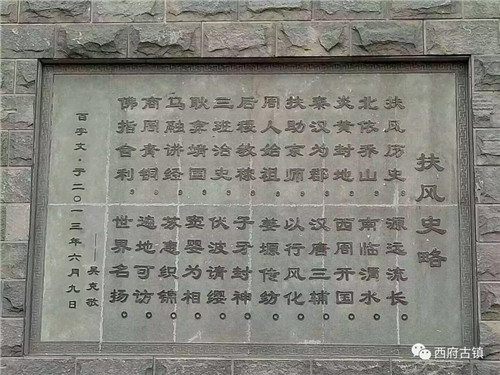 扶风史略
扶风历史 源远流长。
北依乔山 南临渭水。
炎黄封地 西周开国。
秦汉为郡 汉唐三辅。
扶助京师 以行风化。
周人始祖 姜嫄传纺。
后稷教稼 子牙封神。
三班治史 伏波请缨。
耿弇靖国 窦婴为相。
马融讲经 苏惠织锦。
商周青铜 遍地可访。
佛指舍利 世界名扬。
百字文·于二〇一三年六月九日
——吴克敬
西府古镇